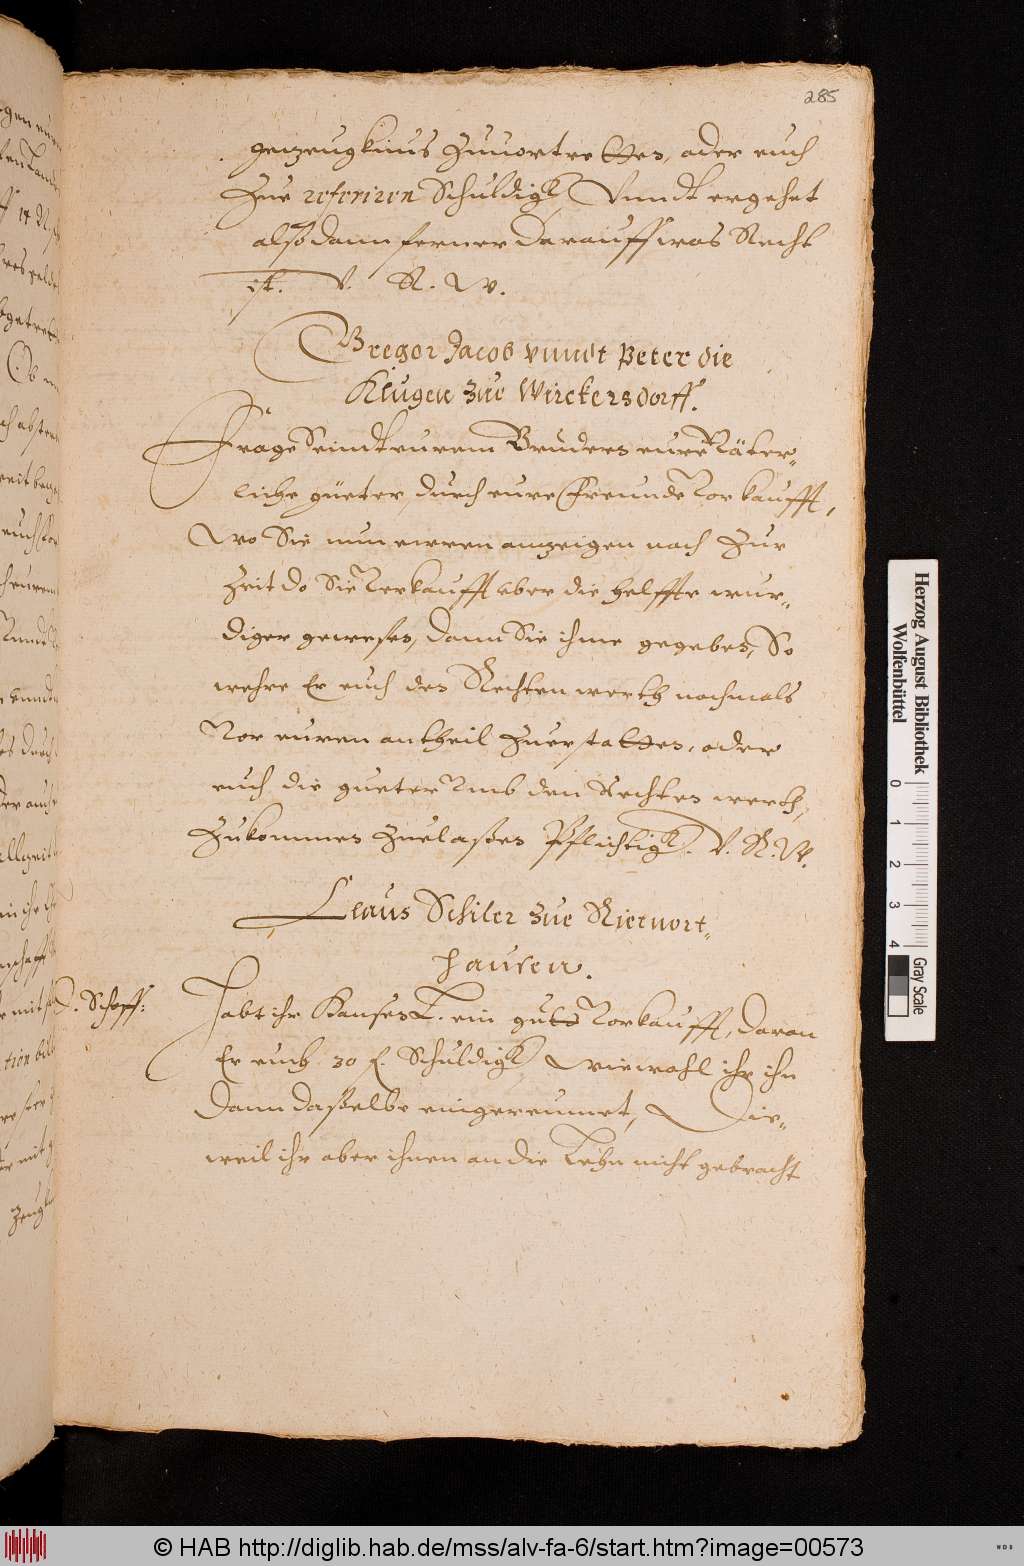 285
gezeugknus zuuortretten, oder euch
zue referiren Schuldigk, Vnndt ergehet
alßdann ferner darauff was Recht
ist. V. R. W.
Gregor Jacob vnndt Peter die
Klugen zue Wirckersdorff.
Frage Seindt eurem Bruders eure Väter-
liche güeter, durch eure Freunde Vorkaufft,
Wo Sie nun ewren anzeigen nach zur
Zeit do Sie Verkaufft vber die helffte wur-
diger gewesen, dann Sie ihme gegeben, So
wehre Er euch den Rechten werth nochmals
Vor euren antheil zuerstatten, oder
euch die gueter Vmb den Rechten werth,
zukommen zuelaßen Pflichtigk. V. R. W.
Claus Schiler zue Rietnort-
hausen.
D. Scheff:
Habt ihr Hansen L. ein guth Vorkaufft, daran
Er euch 30 f. Schuldigk Wiewohl ihr ihn
dann daßelbe eingereumet, Die-
weil ihr aber ihnen an die Lehn nicht gebracht
Herzog August Bibliothek
Wolfenbüttel
0 1 2 3 4
Gray Scale
© HAB http://diglib.hab.de/mss/alv-fa-6/start.htm?image=00573
WDB